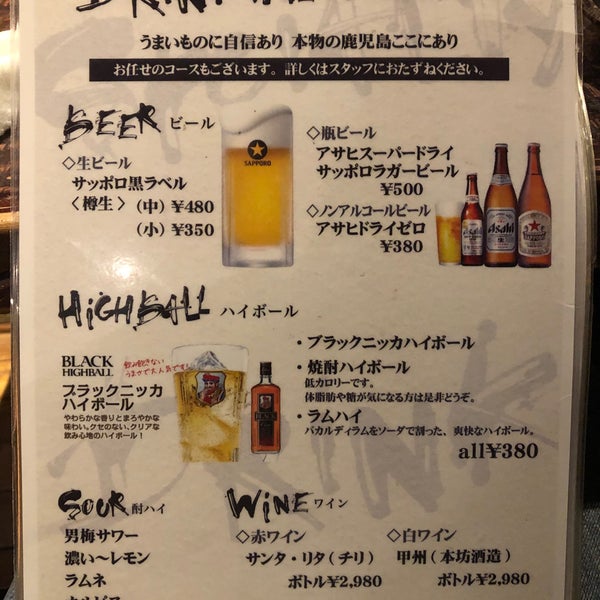 DRINK
うまいものに自信あり 本物の鹿児島ここにあり
お任せのコースもございます。詳しくはスタッフにおたずねください。
BEER ビール
◇生ビール
サッポロ黒ラベル
〈樽生〉(中)¥480
(小)¥350
SAPPORO
◇瓶ビール
アサヒスーパードライ
サッポロラガービール
¥500
◇ノンアルコールビール
アサヒドライゼロ
¥380
Asahi
Asahi
HIGHBALL ハイボール
BLACK
HIGHBALL
飲み飽きない
うまさで大人気です!
ブラックニッカ
ハイボール
やわらかな香りとまろやかな
味わい。クセのない、クリアな
飲み心地のハイボール!
BLACK
・ブラックニッカハイボール
・焼酎ハイボール
低カロリーです。
体脂肪や糖が気になる方は是非どうぞ。
・ラムハイ
バカルディラムをソーダで割った、爽快なハイボール。
all¥380
SOUR 酎ハイ
男梅サワー
濃い〜レモン
ラムネ
WINE ワイン
◇赤ワイン
サンタ・リタ(チリ)
ボトル¥2,980
◇白ワイン
甲州(本坊酒造)
ボトル¥2,980